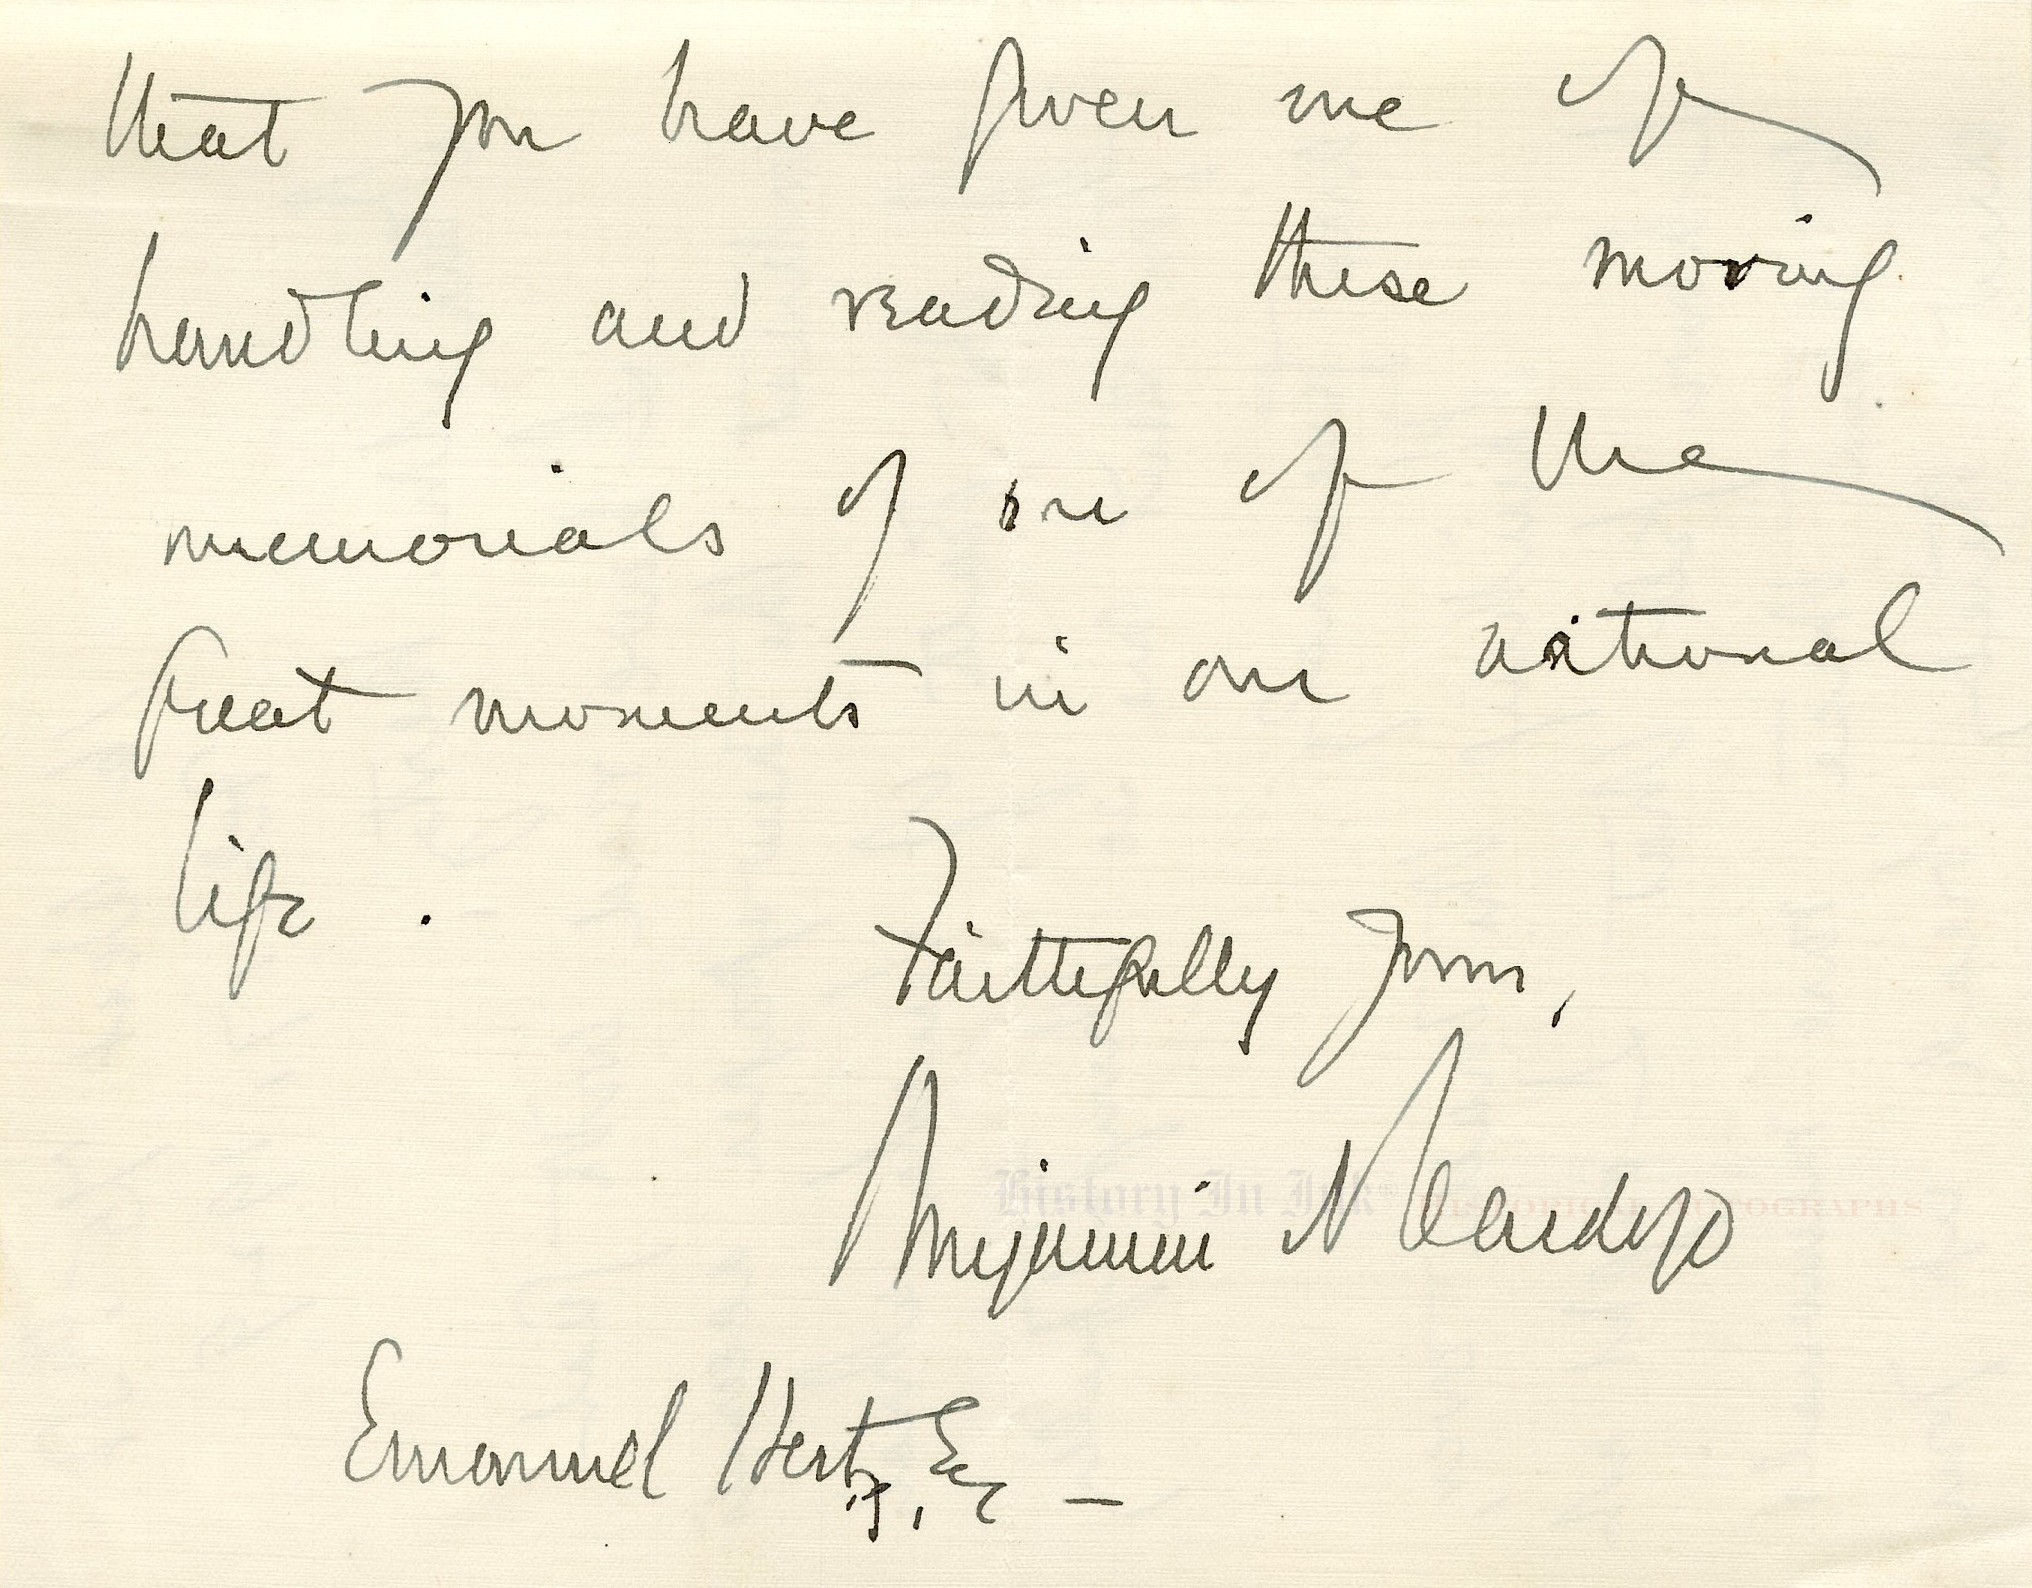 that you have given me of
handling and reading these moving
memorials of one of the
great moments in our national
life.
Faithfully yours,
Benjamin N Cardozo
History In Ink® HISTORICAL AUTOGRAPHS
Emanuel Hertz, Esq —